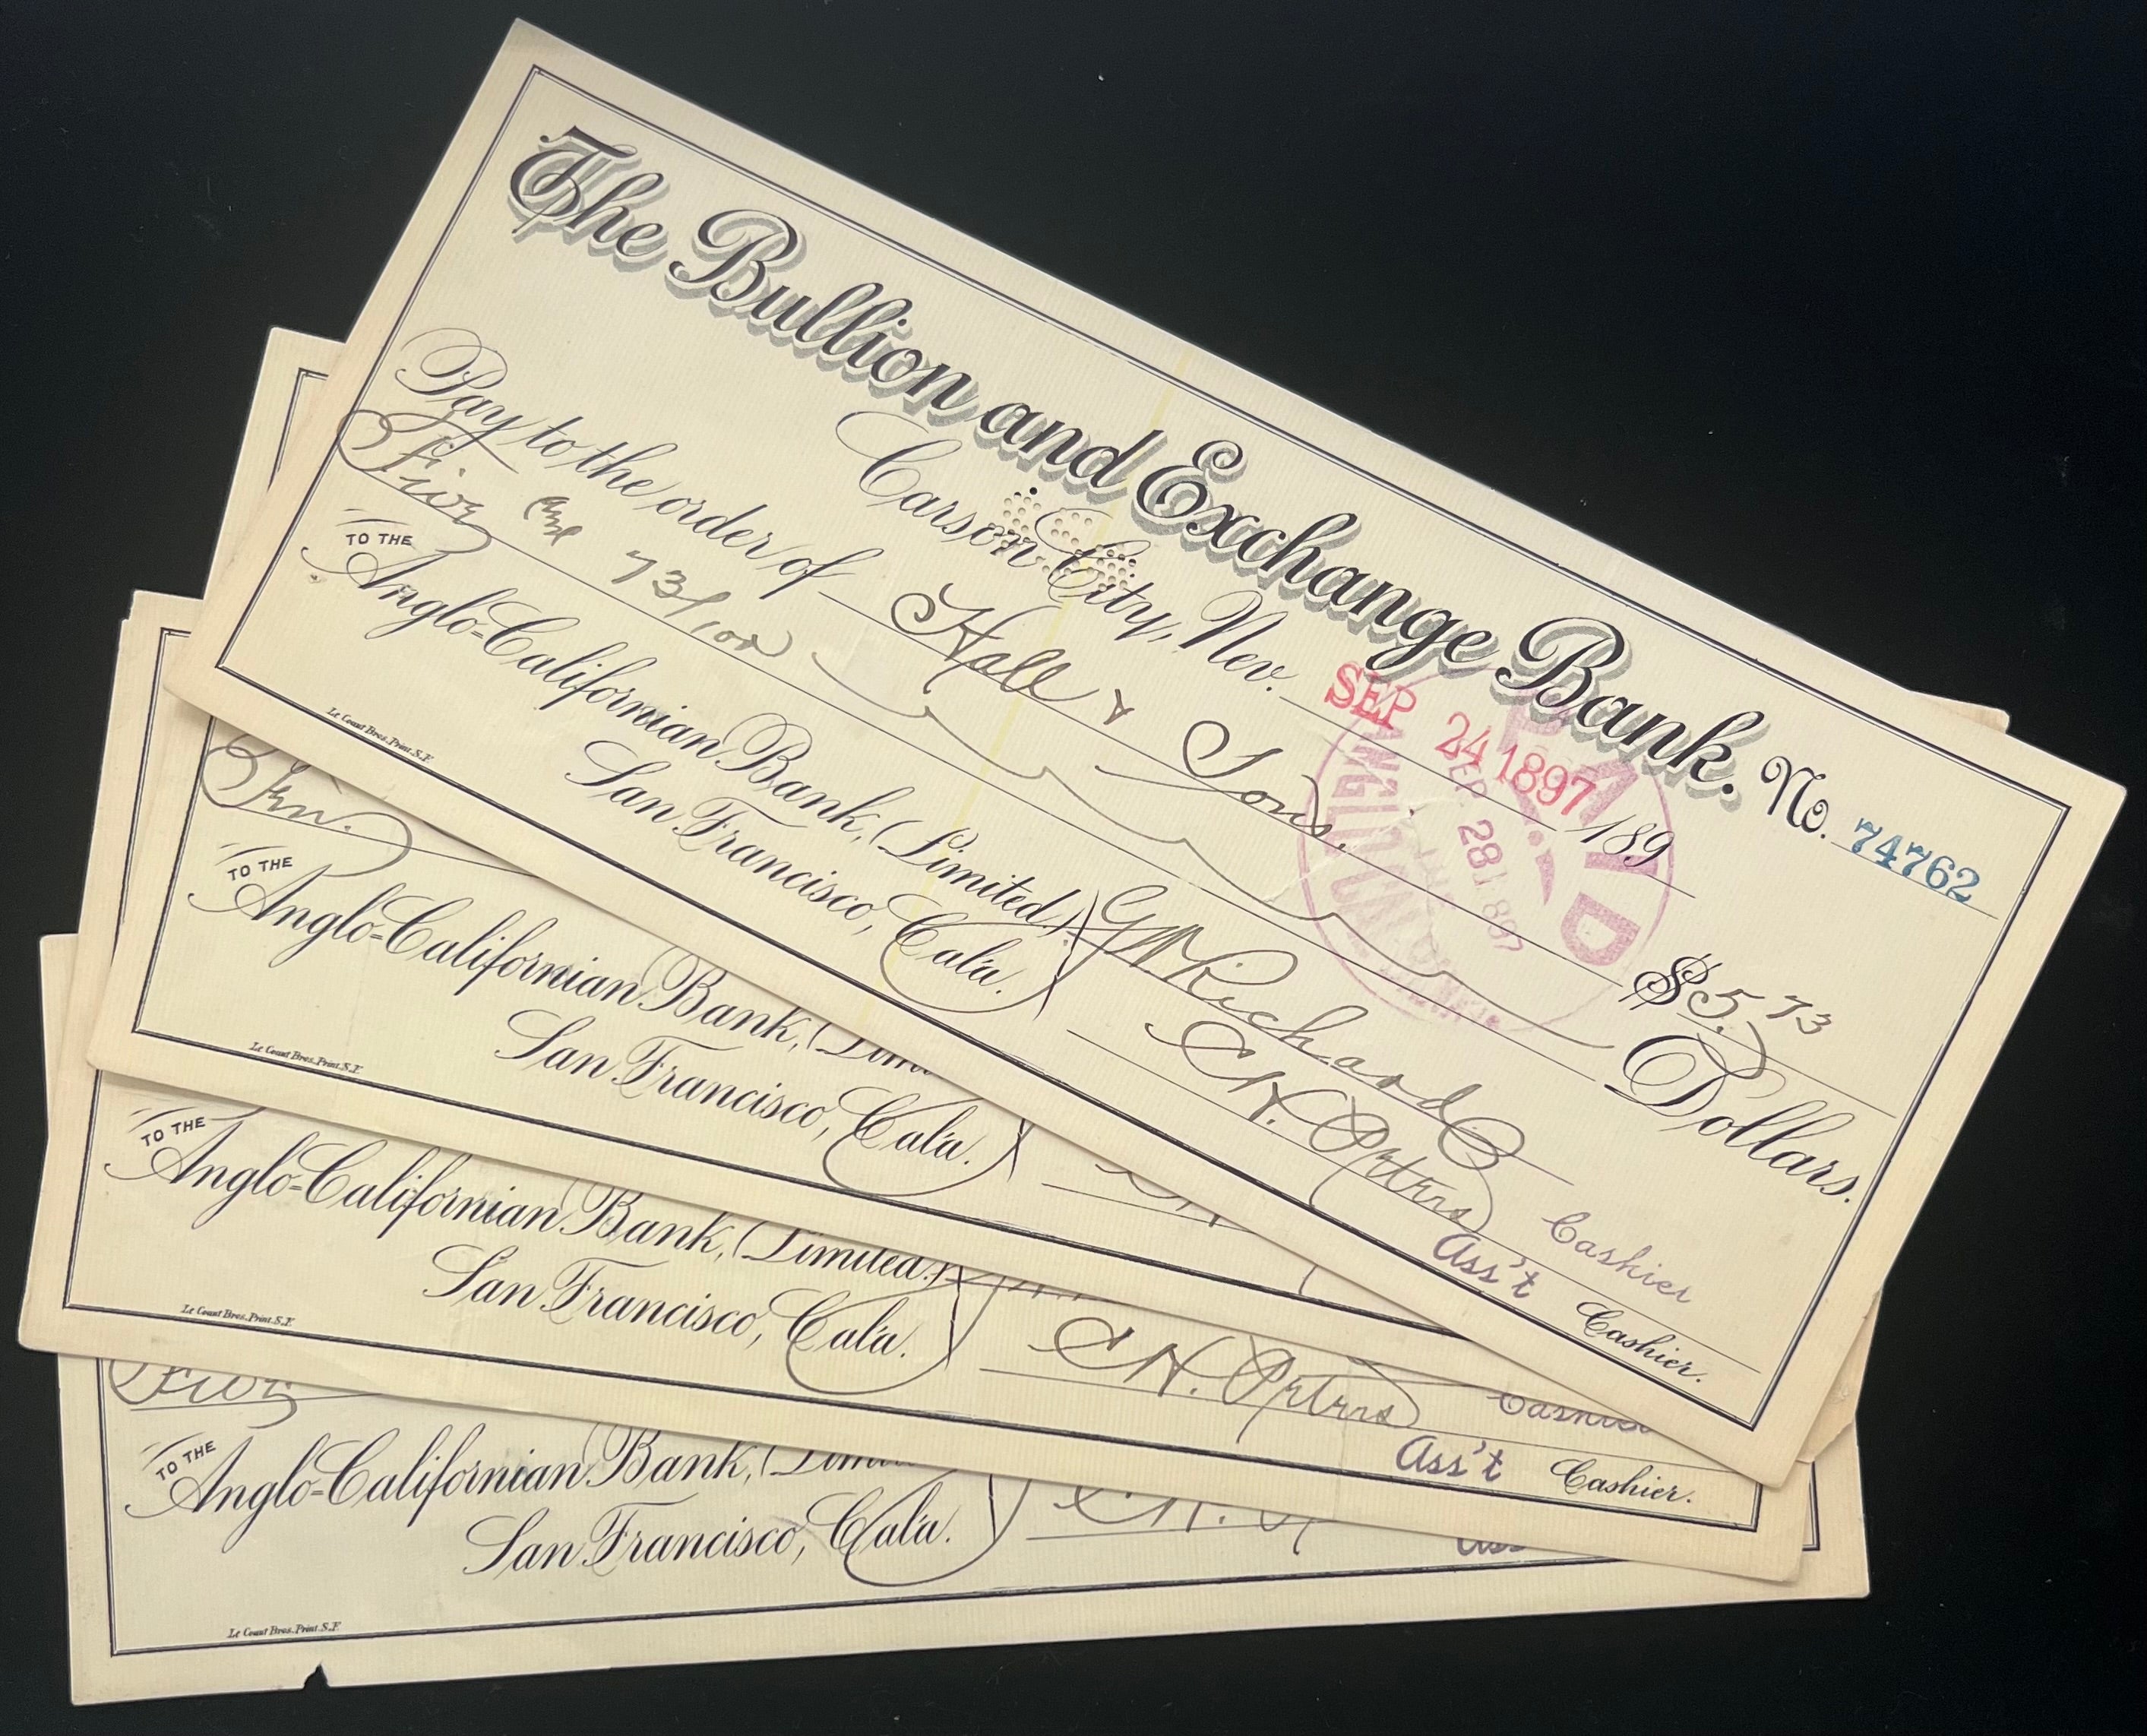 The Bullion and Exchange Bank. No. 74762
Carson City, Nev. SEP 24 1897 189
Pay to the order of Hall & Sons. $5.73
Five and 73/100 Dollars.
TO THE
Anglo-Californian Bank, (Limited,)
San Francisco, Cala.
G W Richard
Cashier
Ass't Cashier.
Le Count Bros. Print. S.F.
PAID
SEP 28 1897
TO THE
Anglo-Californian Bank,
San Francisco, Cala.
Le Count Bros. Print. S.F.
TO THE
Anglo-Californian Bank, (Limited,)
San Francisco, Cala.
C.H. Peters
Cashier
Ass't Cashier.
Le Count Bros. Print. S.F.
Five
TO THE
Anglo-Californian Bank,
San Francisco, Cala.
Le Count Bros. Print. S.F.